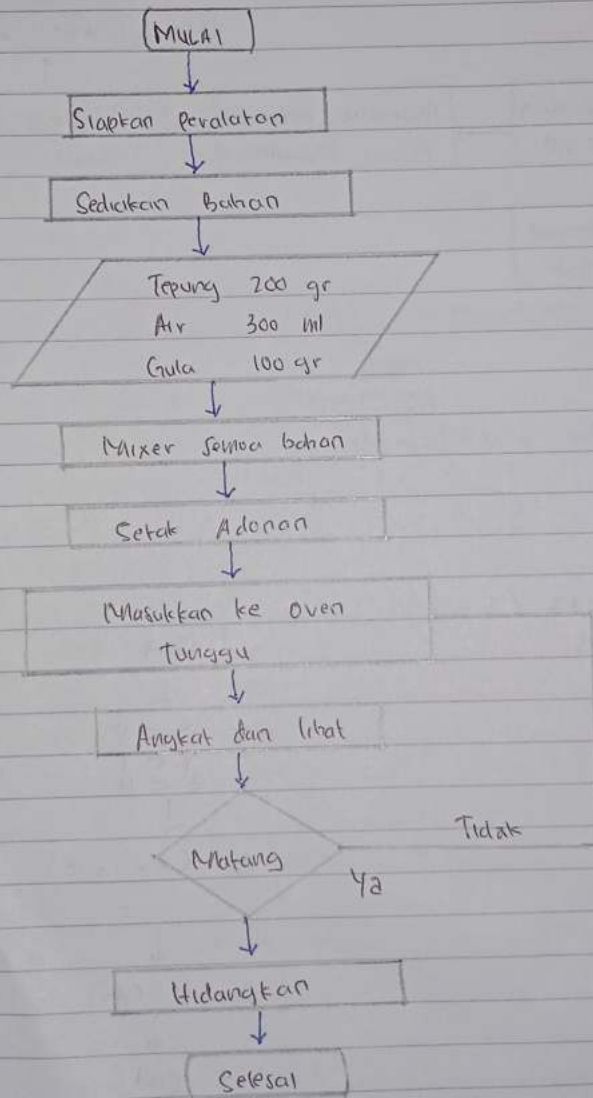 MULAI
Siapkan Peralatan
Sediakan Bahan
Tepung 200 gr
Air 300 ml
Gula 100 gr
Mixer semua bahan
Setak Adonan
Masukkan ke oven
tunggu
Angkat dan lihat
Matang
Tidak
Ya
Hidangkan
Selesai